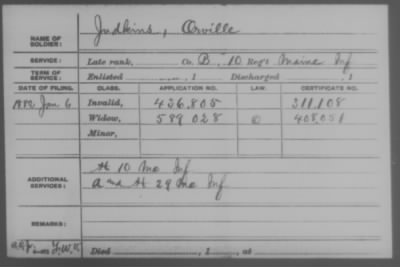 NAME OF SOLDIER: Judkins, Orville
SERVICE: Late rank, Co. B, 10 Reg't Maine Inf
TERM OF SERVICE: Enlisted , 1 Discharged , 1
DATE OF FILING. CLASS. APPLICATION NO. LAW. CERTIFICATE NO.
Jan 6 Invalid, 436,805 311,108
Widow, 589 028 408,051
Minor,
ADDITIONAL SERVICES: H 10 Me Inf
A and H 29 Me Inf
REMARKS:
Died , 1 , at